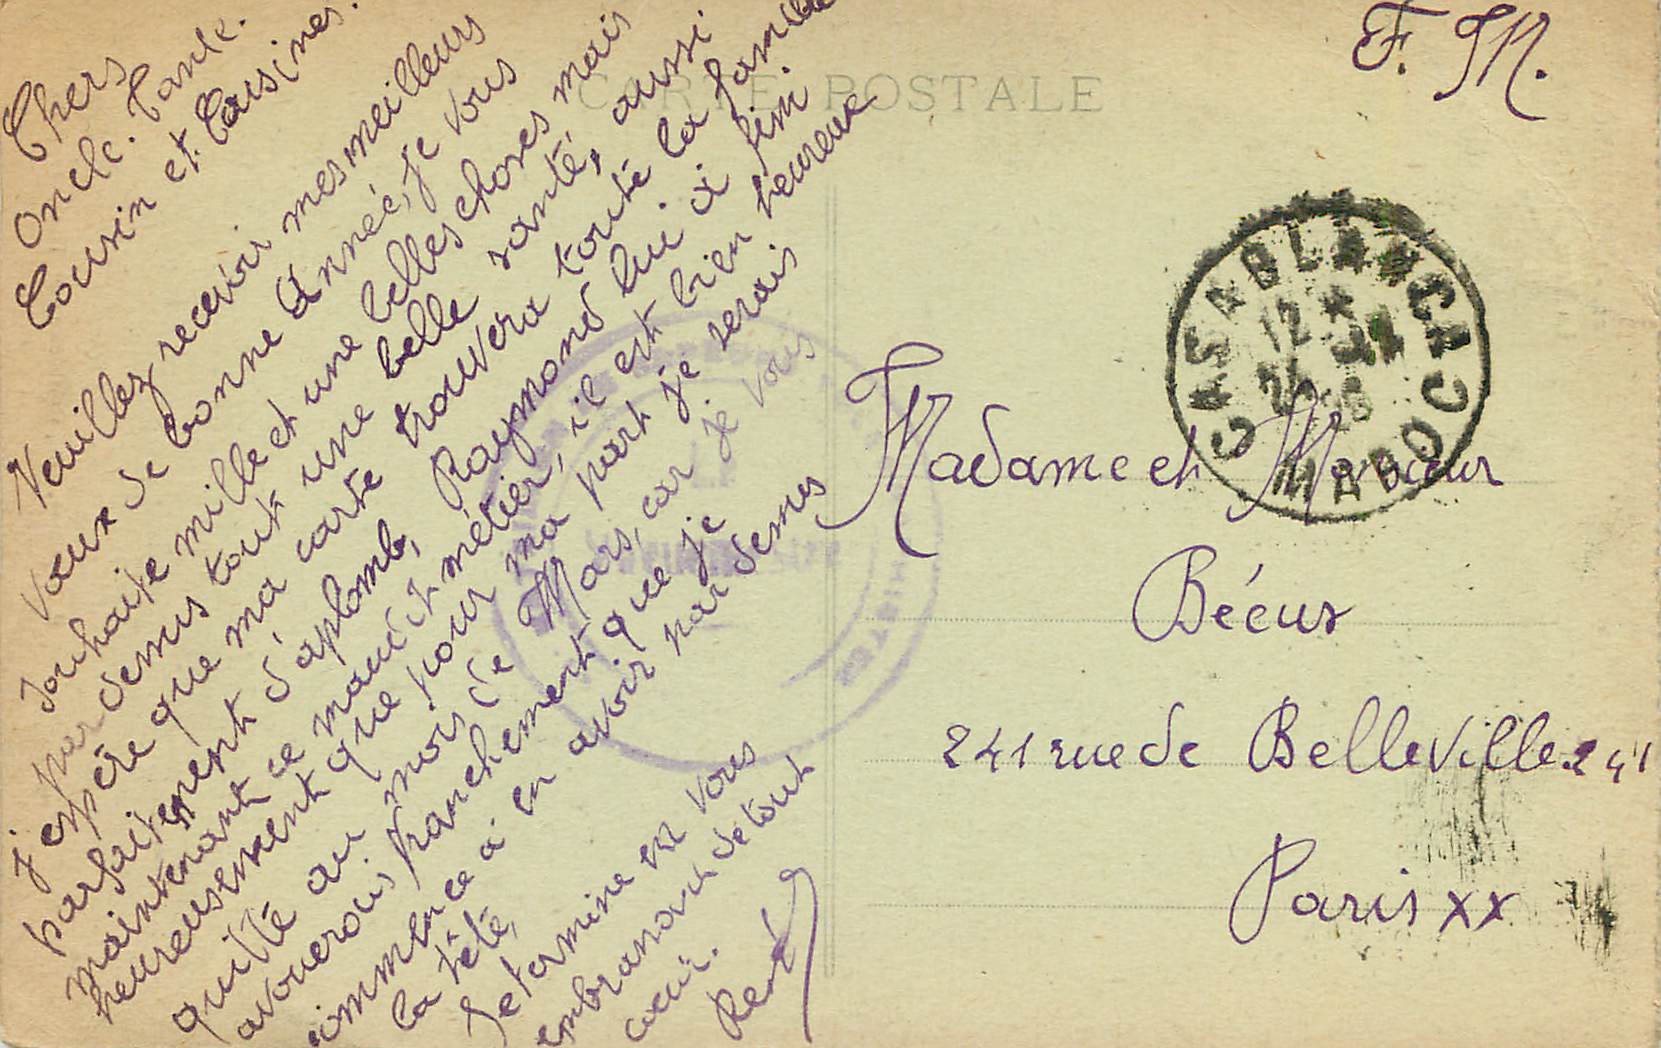 Chers
Oncle. Tante.
Cousin et Cousines.
Veuillez recevoir mes meilleurs
vœux de bonne Année, je vous
souhaite mille et une belles choses mais
par dessus tout une belle santé, aussi
j'espère que ma carte trouvera toute la famille
parfaitement d'aplomb, Raymond lui a fini
maintenant ce maudit métier, il est bien heureux
heureusement que pour ma part je serais
quitté au mois de Mars, car je vous
avouerais franchement que je
commence à en avoir par dessus
la tête,
Je termine en vous
embrassant de tout
cœur.
René
CARTE POSTALE
F. M.
CASABLANCA
12 *
MAROC
Madame et Monsieur
Bécus
241 rue de Belleville 241
Paris XX